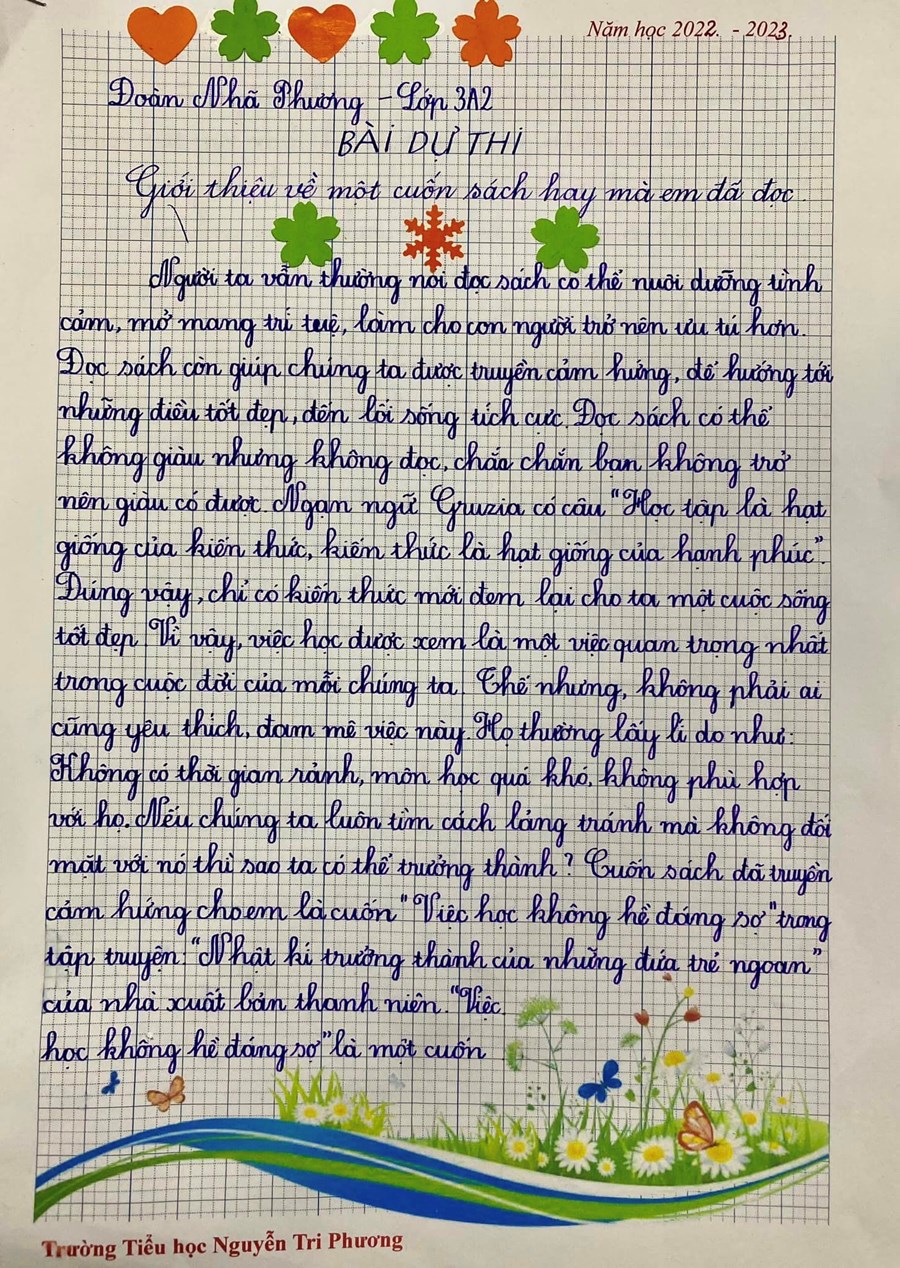 Năm học 2022. - 2023.
Đoàn Nhã Phương - Lớp 3A2
BÀI DỰ THI
Giới thiệu về một cuốn sách hay mà em đã đọc.
Người ta vẫn thường nói đọc sách có thể nuôi dưỡng tình
cảm, mở mang trí tuệ, làm cho con người trở nên ưu tú hơn.
Đọc sách còn giúp chúng ta được truyền cảm hứng, để hướng tới
những điều tốt đẹp, đến lối sống tích cực. Đọc sách có thể
không giàu nhưng không đọc, chắc chắn bạn không trở
nên giàu có được. Ngạn ngữ Gruzia có câu "Học tập là hạt
giống của kiến thức, kiến thức là hạt giống của hạnh phúc".
Đúng vậy, chỉ có kiến thức mới đem lại cho ta một cuộc sống
tốt đẹp. Vì vậy, việc học được xem là một việc quan trọng nhất
trong cuộc đời của mỗi chúng ta. Thế nhưng, không phải ai
cũng yêu thích, đam mê việc này. Họ thường lấy lí do như:
Không có thời gian rảnh, môn học quá khó, không phù hợp
với họ. Nếu chúng ta luôn tìm cách lảng tránh mà không đối
mặt với nó thì sao ta có thể trưởng thành? Cuốn sách đã truyền
cảm hứng cho em là cuốn "Việc học không hề đáng sợ" trong
tập truyện: "Nhật kí trưởng thành của những đứa trẻ ngoan"
của nhà xuất bản thanh niên. "Việc
học không hề đáng sợ" là một cuốn
Trường Tiểu học Nguyễn Tri Phương